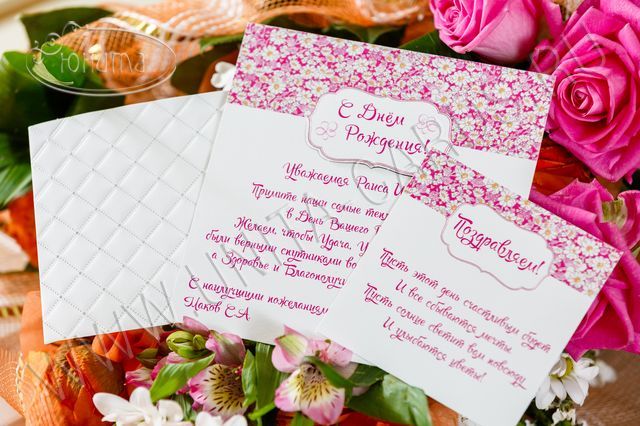 Юнита
С Днём
Рождения!
Уважаемая Раиса
Примите наши самые
в День Вашего
Желаем, чтобы Удача,
были верными спутниками
а Здоровье и
С наилучшими пожеланиями
Паков С.А.
Поздравляем!
Пусть этот день счастливым будет
И все сбываются мечты.
Пусть солнце светит вам
И улыбаются цветы!